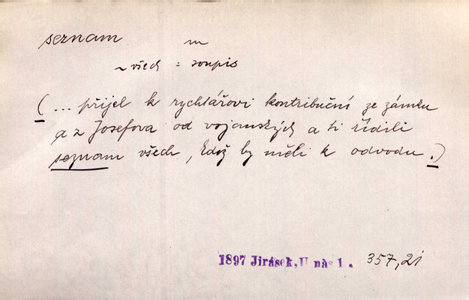 seznam m
~ všech = soupis
(... přijel k rychtářovi kontribuční ze zámku
a z Josefova od vojanských a ti řídili
seznam všech, kdož by měli k odvodu.)
1897 Jirásek, U nás 1. 357,21